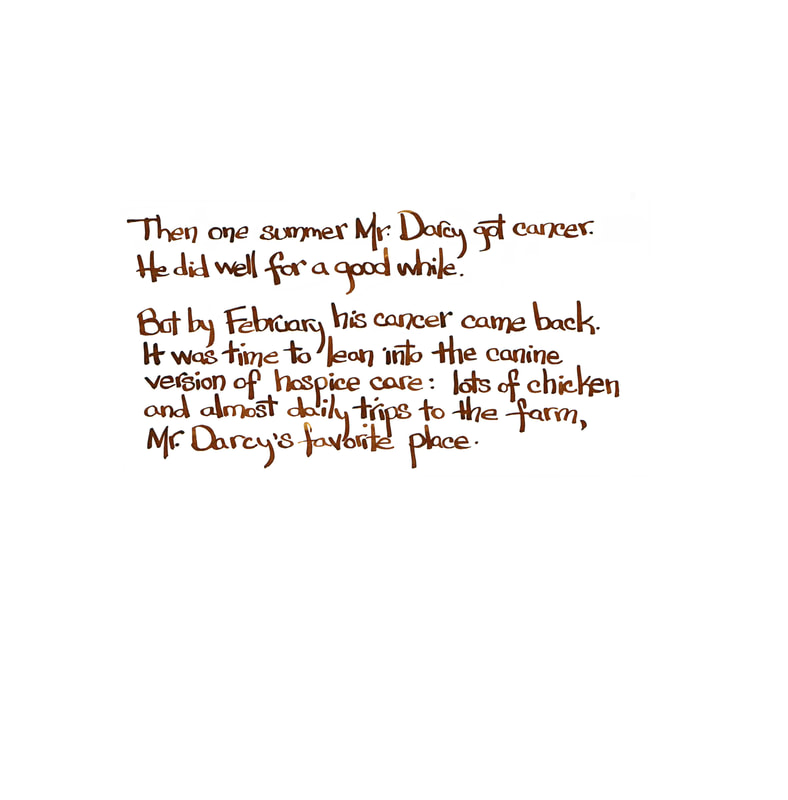 Then one summer Mr. Darcy got cancer.
He did well for a good while.
But by February his cancer came back.
It was time to lean into the canine
version of hospice care: lots of chicken
and almost daily trips to the farm,
Mr. Darcy's favorite place.